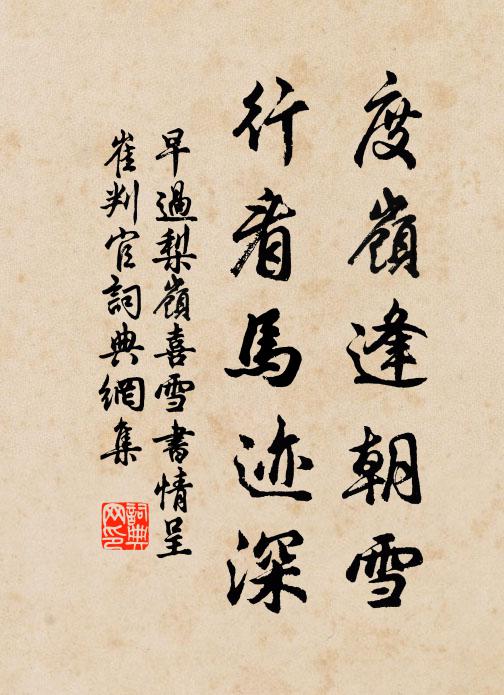 度嶺逢朝雪
行看馬迹深
早過梨嶺喜雪書情呈
崔判官詞典網集
詞典
网印